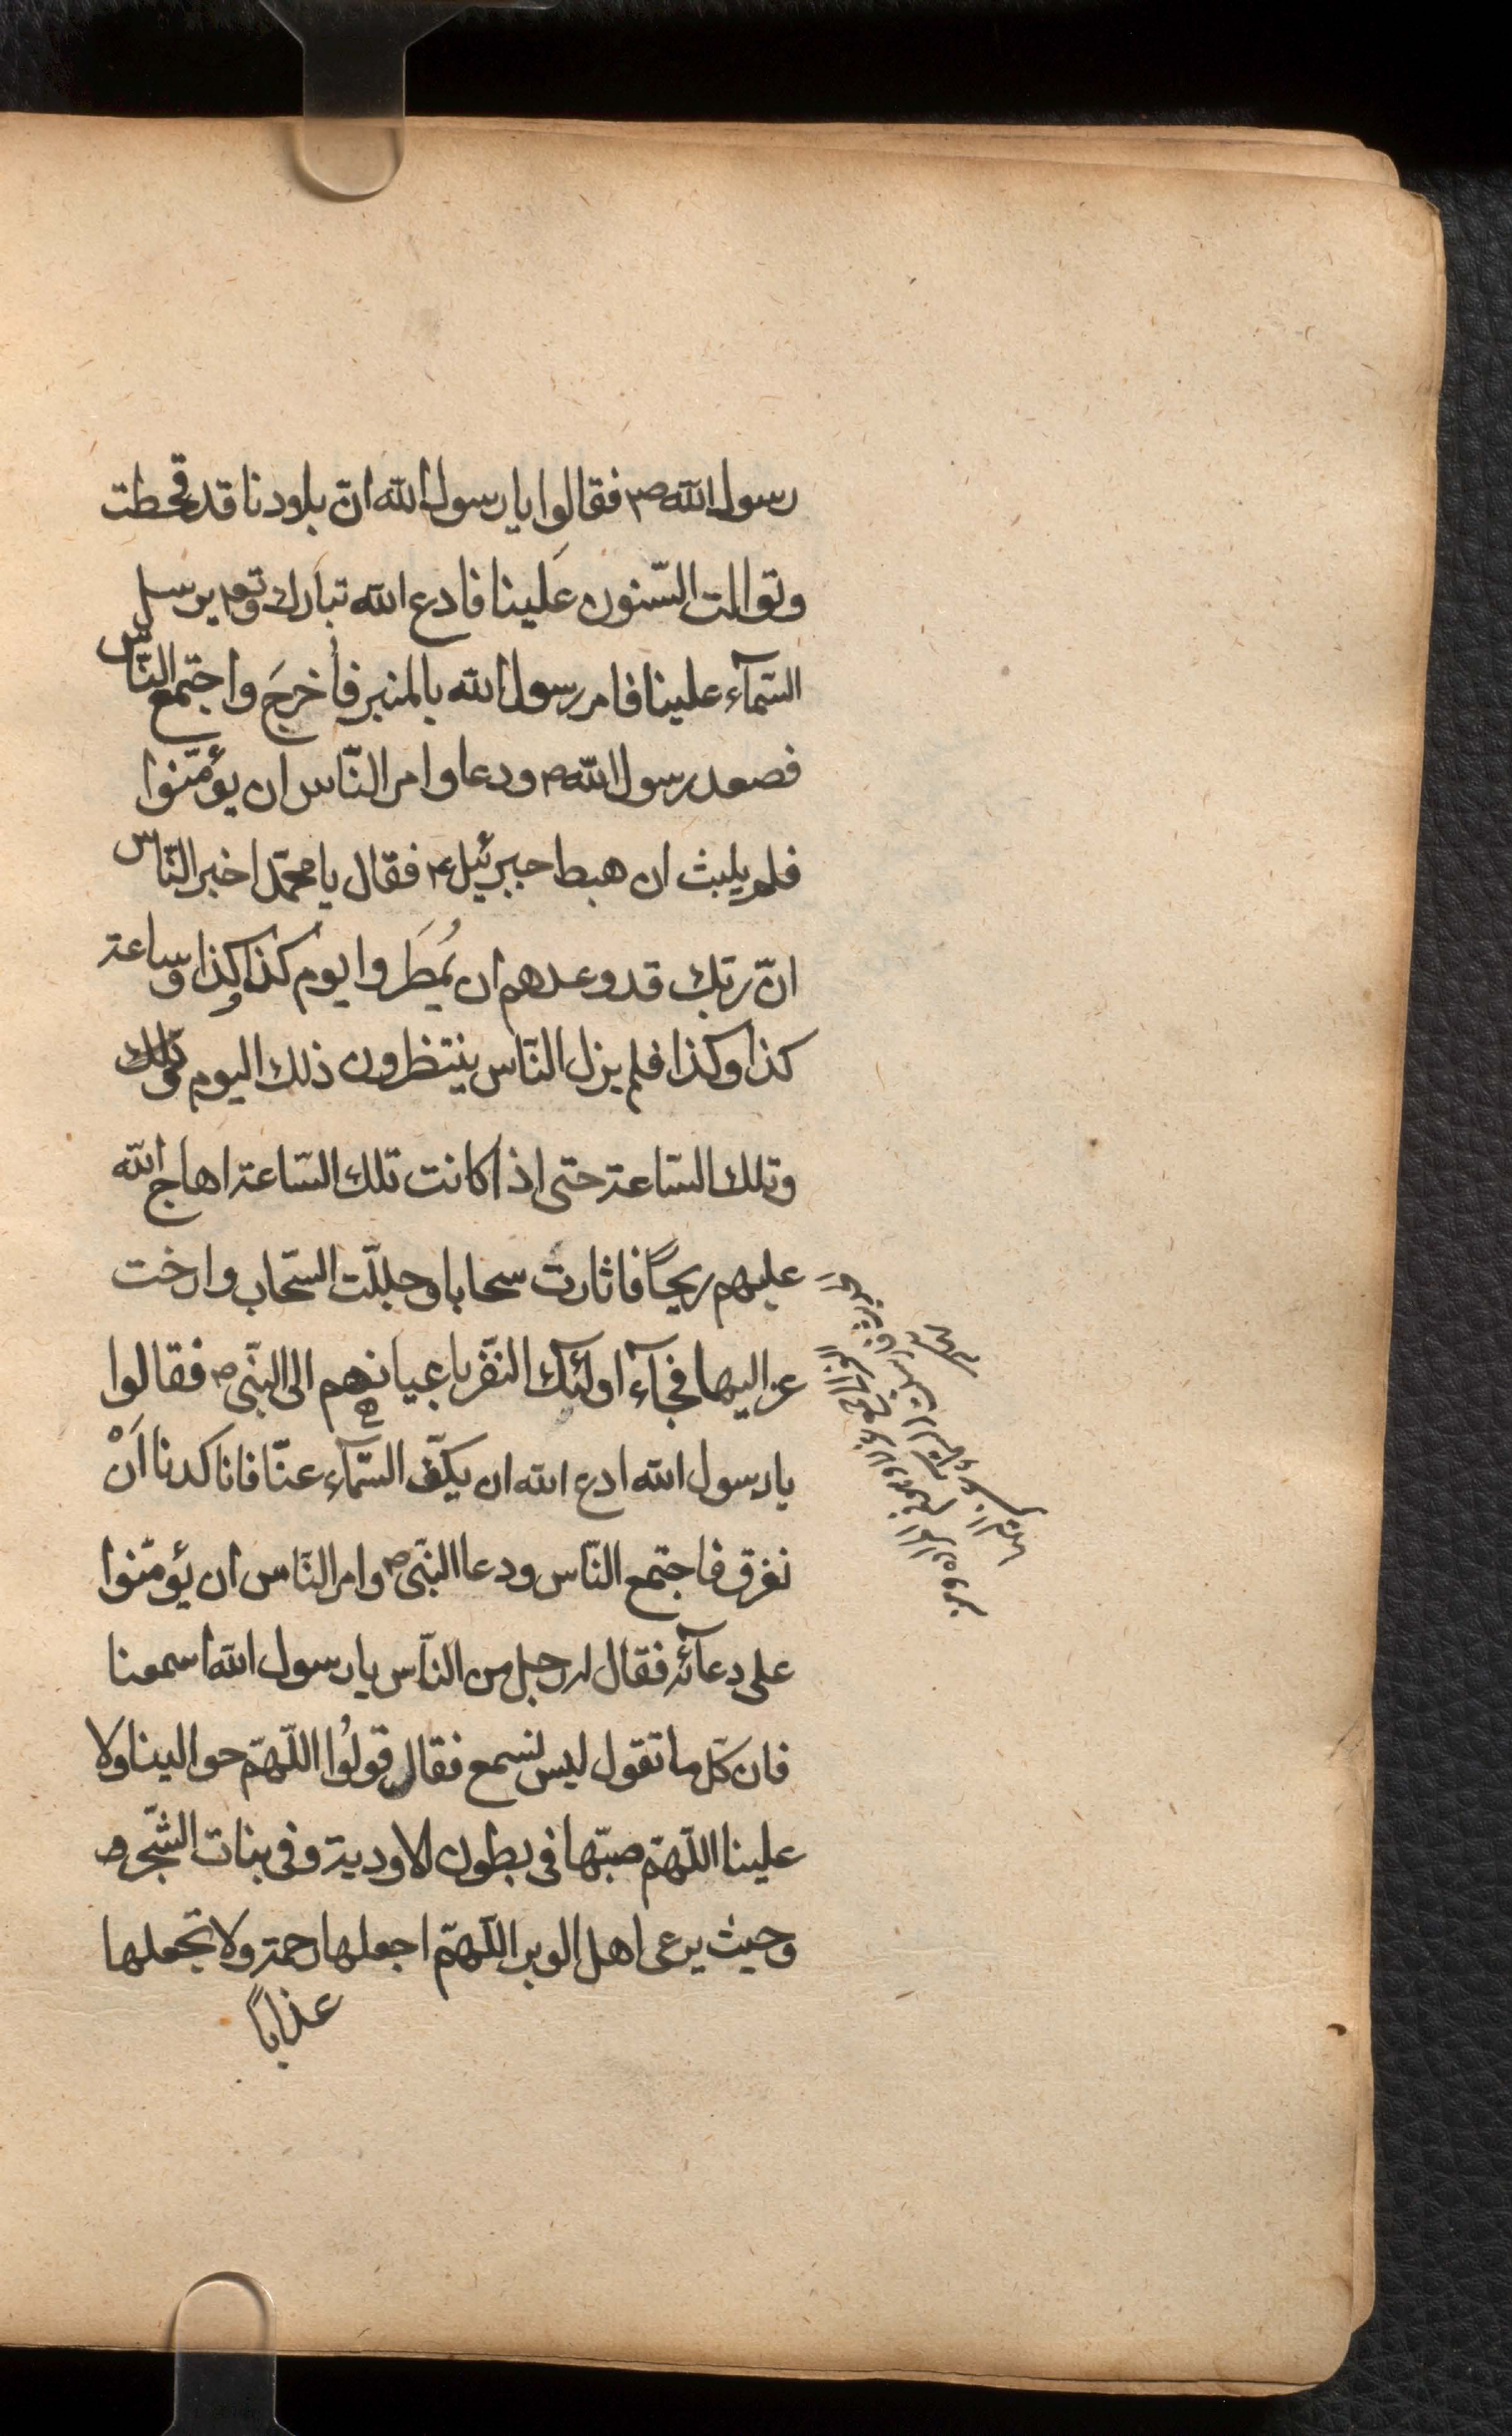 رسول الله ص فقالوا يا رسول الله انّ بلادنا قد قحطت
وتوالت السّنون عَلينا فادع الله تبارك وتع يرسل
السّمآء علينا فامر رسول الله بالمنبر فأُخرجَ واجتمع النّاس
فصعد رسول الله ص ودعا وامر النّاس ان يؤمّنوا
فلم يلبث ان هبط جبرئيل ع فقال يا محمّد اخبر النّاس
انّ ربّك قد وعدهم ان يُمطَروا يوم كذا وكذا وساعة
كذا وكذا فلم يزل النّاس ينتظرون ذلك اليوم وتلك
وتلك السّاعة حتى اذا كانت تلك السّاعة اهاج الله
عليهم ريحاً فاثارت سحابا وجلّلت السّحاب وارخت
عزاليها فجآء اولئك النّفر باعيانهم الى النّبي ص فقالوا
يا رسول الله ادع الله ان يكفّ السّمآء عنّا فانا كدنا اَنْ
نغرق فاجتمع النّاس ودعا النّبي ص وامر النّاس ان يؤمّنوا
على دعآئه فقال له رجل من النّاس يا رسول الله اسمعنا
فان كلّ ما تقول ليس نسمع فقال قولُوا اللّهمّ حوالينا ولا
علينا اللّهمّ صبّها فى بطون الاودية وفى نبات الشّجر
وحيث يرعى اهل الوبر اللّهمّ اجعلها رحمة ولا تجعلها
عذاباً